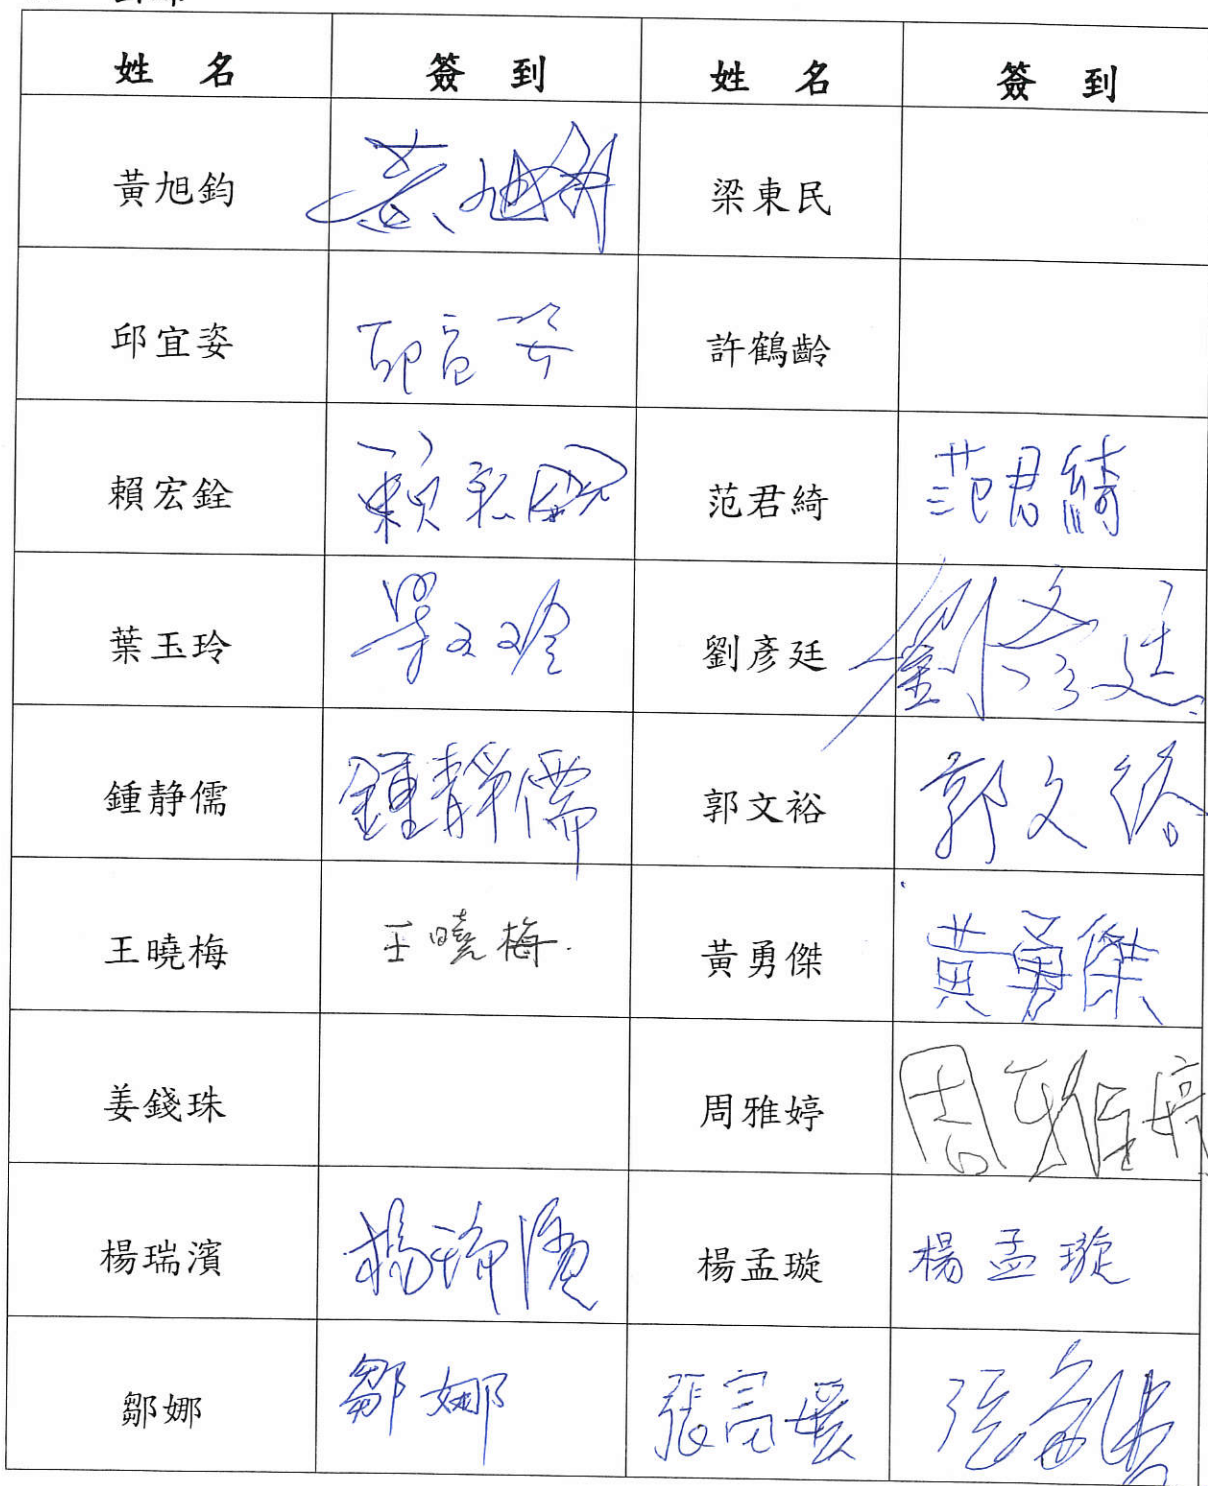 姓名 簽到 姓名 簽到
黃旭鈞 黃旭鈞 梁東民
邱宜姿 邱宜姿 許鶴齡
賴宏銓 賴宏銓 范君綺 范君綺
葉玉玲 葉玉玲 劉彥廷 劉彥廷
鍾靜儒 鍾靜儒 郭文裕 郭文裕
王曉梅 王曉梅. 黃勇傑 黃勇傑
姜錢珠 周雅婷 周雅婷
楊瑞濱 楊瑞濱 楊孟璇 楊孟璇
鄒娜 鄒娜